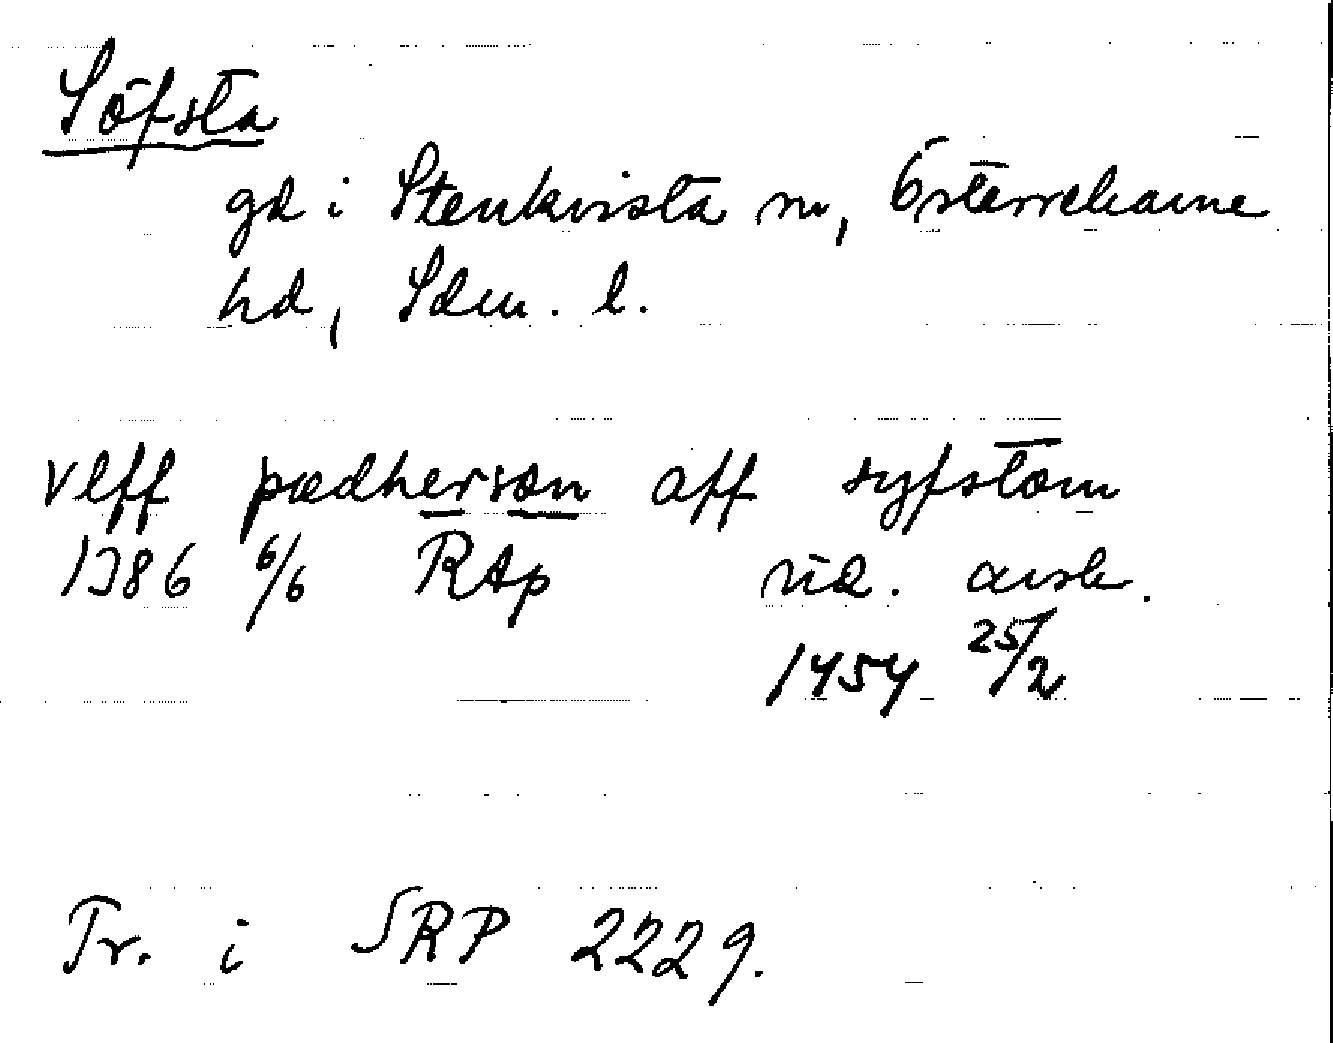 Söfsta
gd i Stenkvista sn, Österrekarne
hd, Sdm. l.
vlff pædherson aff syfstom
1386 6/6 RAp vid. avskr.
1454 25/2
Tr. i SRP 2229.